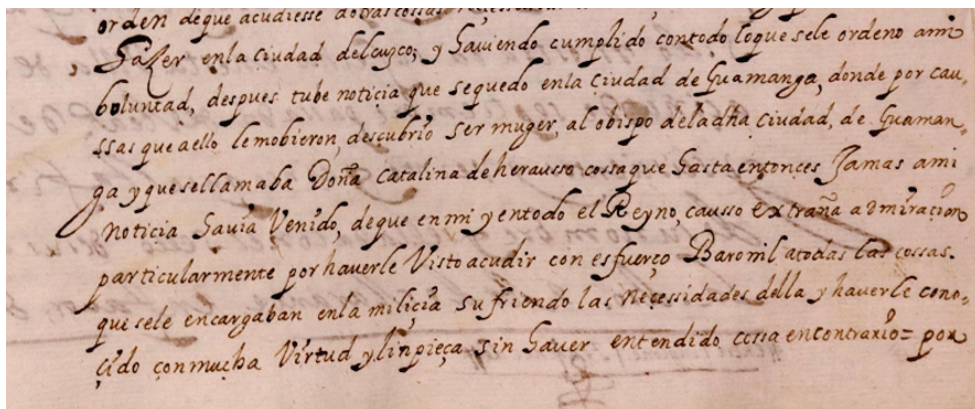 orden deque acudiesse aotras cossas
hazer enla ciudad delcuzco; y haviendo cumplido contodo loque sele ordeno ami
boluntad, despues tube noticia que sequedo enla ciudad de Guamanga, donde por cau,
ssas que aello lemobieron, descubrio ser muger, al obispo deladha ciudad, de Guaman,
ga y quesellamaba Doña Catalina de herausso cossa que hasta entonces Jamas ami
noticia havia Venido, deque en mi y entodo el Reyno, causso extraña admiraçion
particularmente por haverle Visto acudir con esfuerço Baronil atodas las cossas.
que sele encargaban enla miliçia sufriendo las neçessidades della y haverle cono-
çido con mucha Virtud y linpieça sin haver entendido cossa encontrario= por